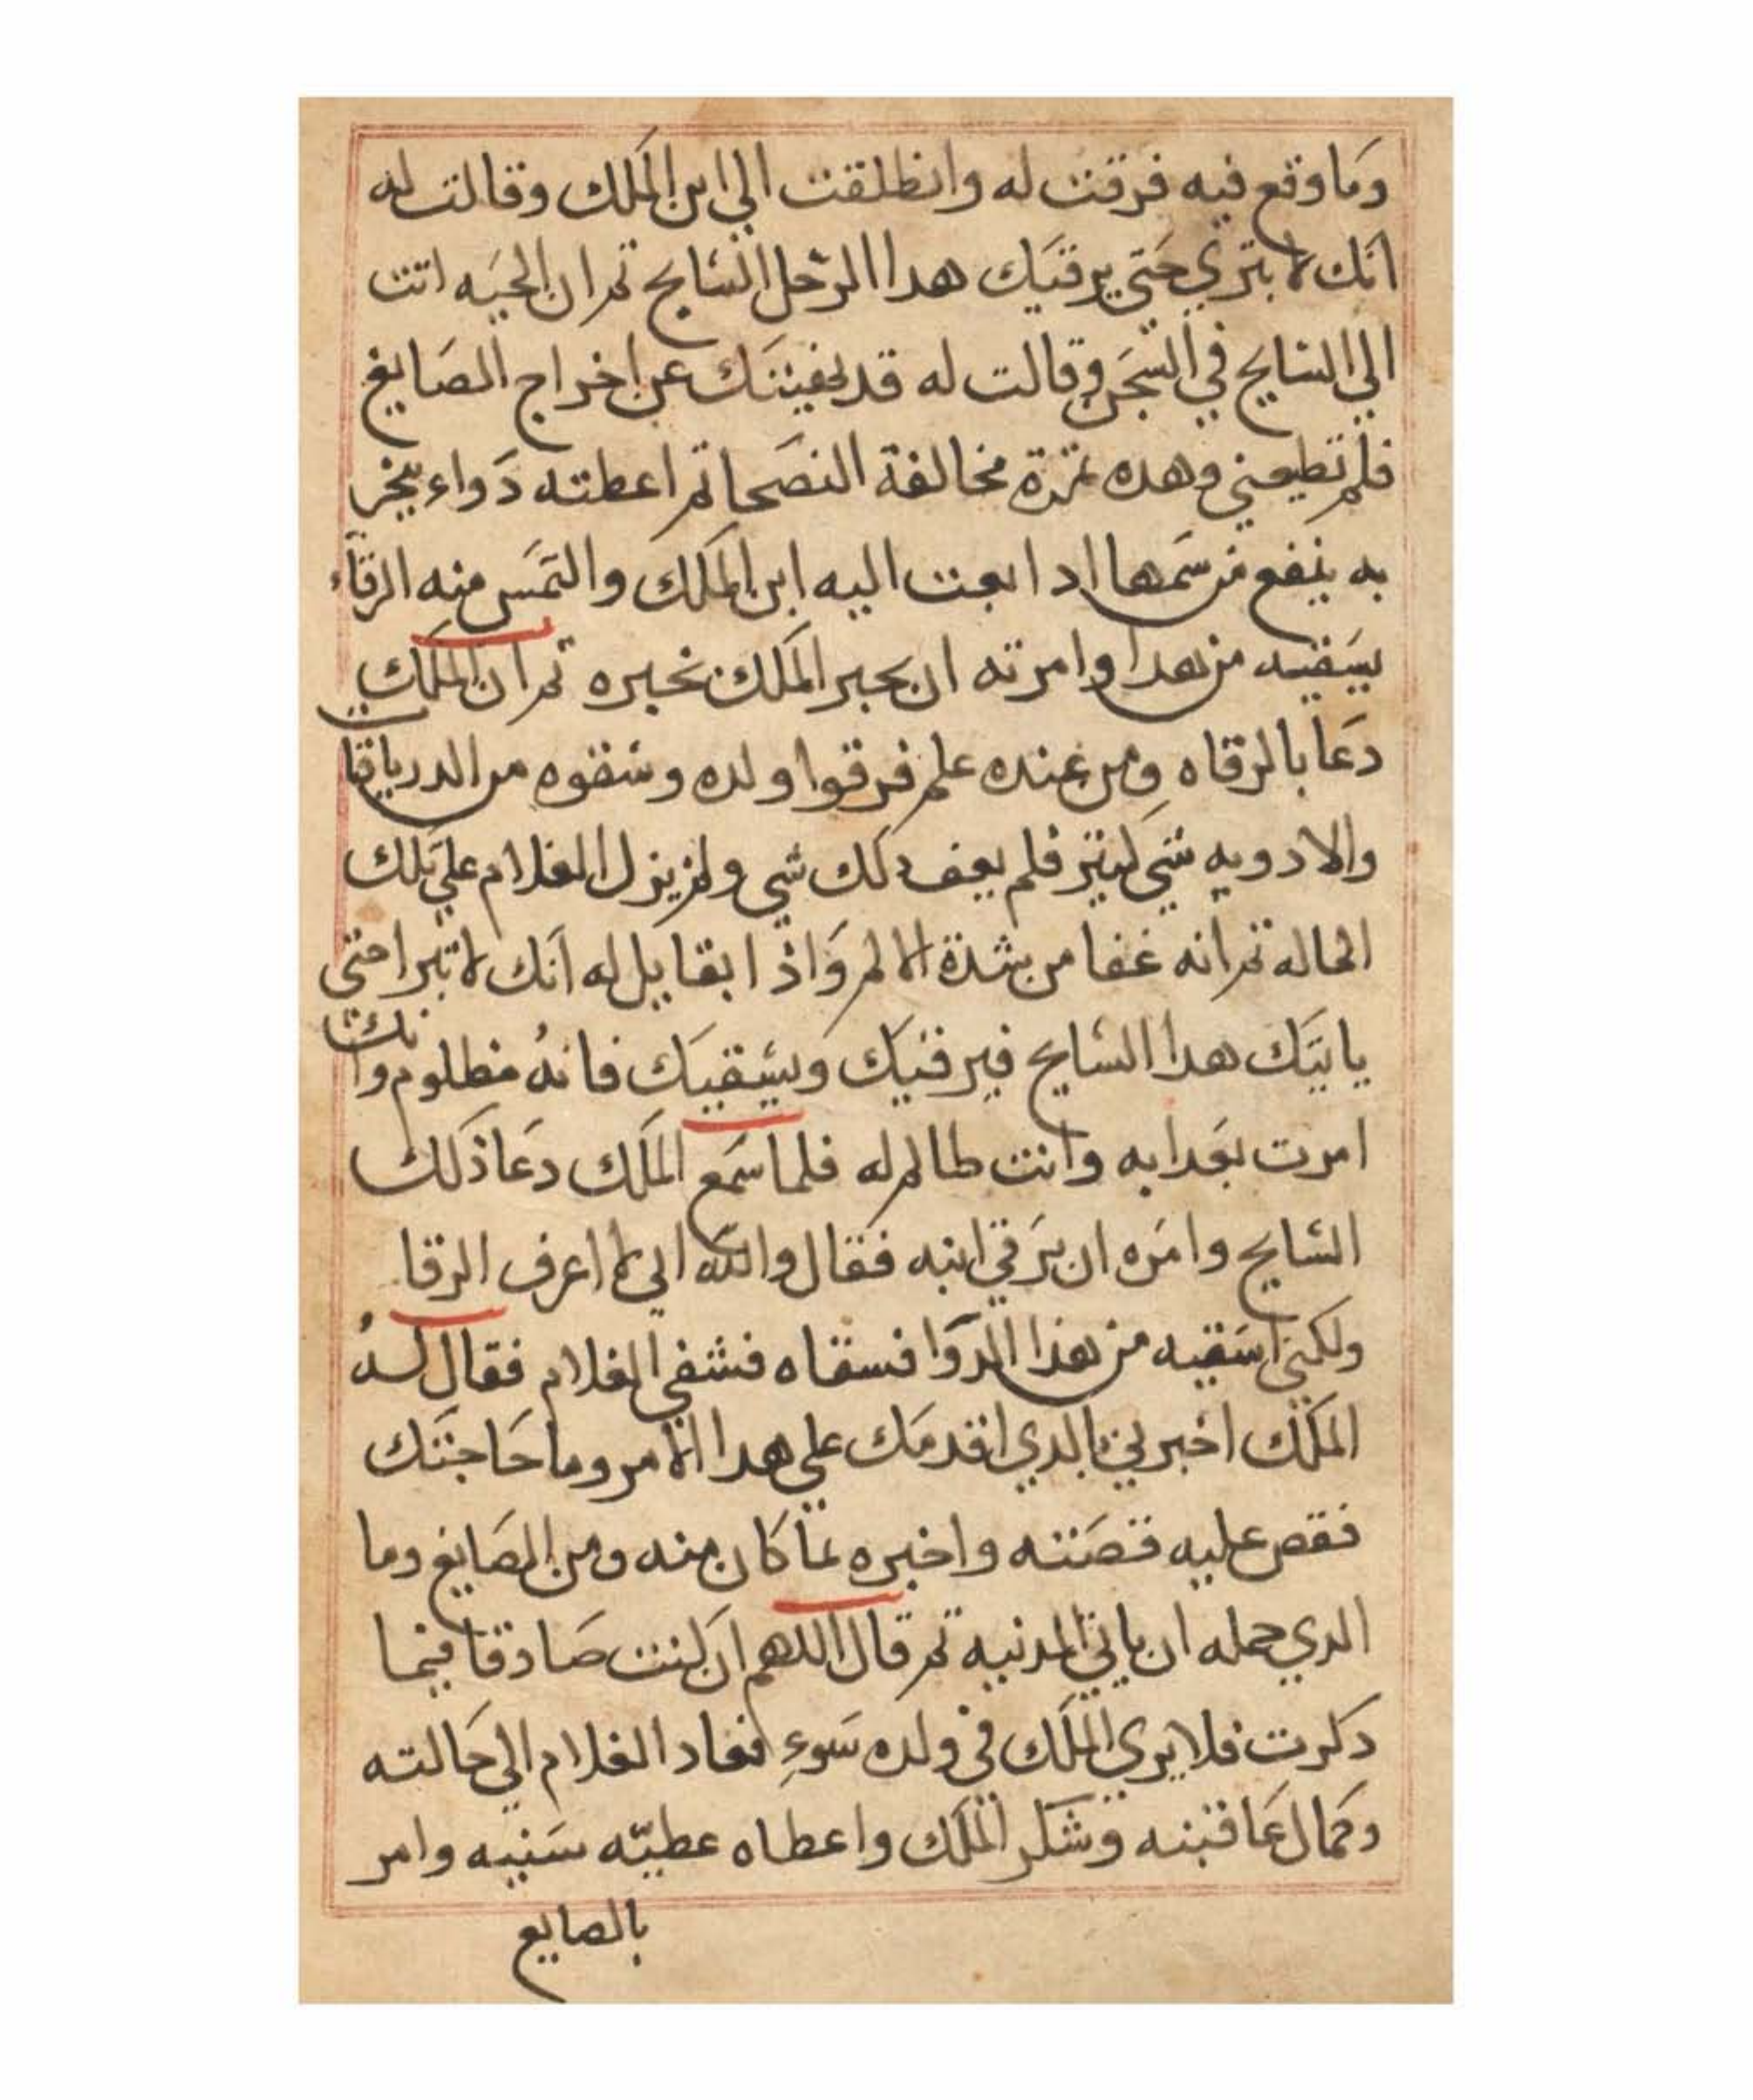 وما وقع فيه فرقت له وانطلقت الي ابن الملك وقالت له
انك لا تبري حتي يرقيك هدا الرجل السايح تم ان الحيه اتت
الي السايح في السجن وقالت له قد نهيتك عن اخراج الصايغ
فلم تطيعني وهده تمرة مخالفة النصحا تم اعطته دواء
به ينفع من سمها ادا بعت اليه ابن الملك والتمس منه الرقاء
يسقيه من هدا وامرته ان يخبر الملك بخبره تم ان الملك
دعا بالرقاه ومن عنده علم فرقوا ولده وسقوه من الدرياقات
والادويه شي كتير فلم دلك شي ولم يزل الغلام علي تلك
الحاله تم انه غفا من شدة الالم واذا بقايل له انك لا تبرا حتي
ياتيك هدا السايح فيرقيك ويسقيك فانه مظلوم وانك
امرت بعدابه وانت ظالم له فلما سمع الملك دعا ذلك
السايح وامره ان يرقي ابنه فقال والله اني لا اعرف الرقا
ولكني اسقيه من هذا الدوا فسقاه فشفي الغلام فقال له
الملك اخبرني بالدي اقدمك علي هدا الامر وما حاجتك
فقص عليه قصته واخبره بما كان منه ومن الصايغ وما
الدي حمله ان ياتي المدنيه تم قال اللهم ان كنت صادقا فيما
دكرت فلا يري الملك في ولده سوء فعاد الغلام الي حالته
وكمال عافيته وشكر الملك واعطاه عطيه سنيه وامر
بالصايع